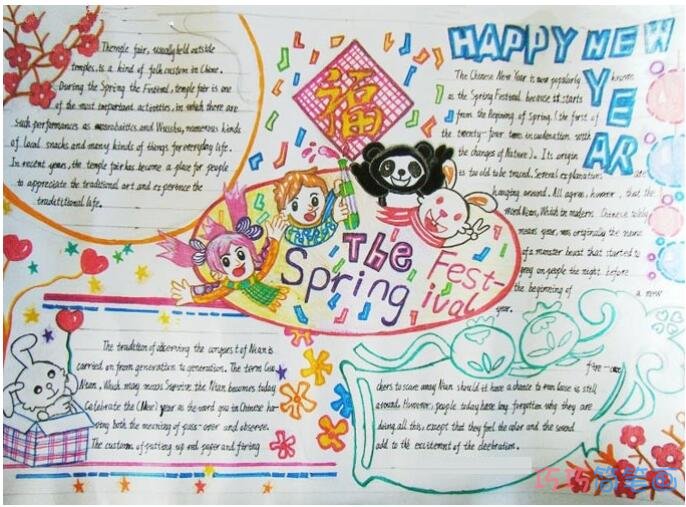 Themple fair, usually held outside
temples, is a kind of folk custom in China.
During the Spring the Festival, temple fair is one
of the most important activities, in which there are
such performances as and Wushu, numerous kinds
of local snacks and many kinds of things for everyday life.
In recent years, the temple fair has become a place for people
to appreciate the traditional art and experience the
tradetitional life.
福
HAPPY NEW
YEAR
The Chinese New Year is now popularly known
as the Spring Festival because it starts
from the Begining of Spring (the first of
the twenty-four terms in coodination with
the changes of Nature). Its origin
is too old to be traced. Several explanations are
hanging around. All agree, however, that the
word Nian, Which in modern Chinese solely
means year, was originally the name
of a monster beast that started to
prey on people the night before
the beginning of a new
year.
The
Spring
Fest-
ival
The tradition of observing the conquest of Nian is
carried on from generation to generation. The term Guo
Nian, Which may means Survive the Nian becomes today
Celebrate the (New) year as the word guo in Chinese ha-
ving both the meaning of pass-over and observe.
The custom of putting up red paper and firing
fire-crac
kers to scare away Nian should it have a chance to run loose is still
around. However, people today have long forgotten why they are
doing all this, except that they feel the color and the sound
add to the excitement of the celebration.
巧巧简笔画